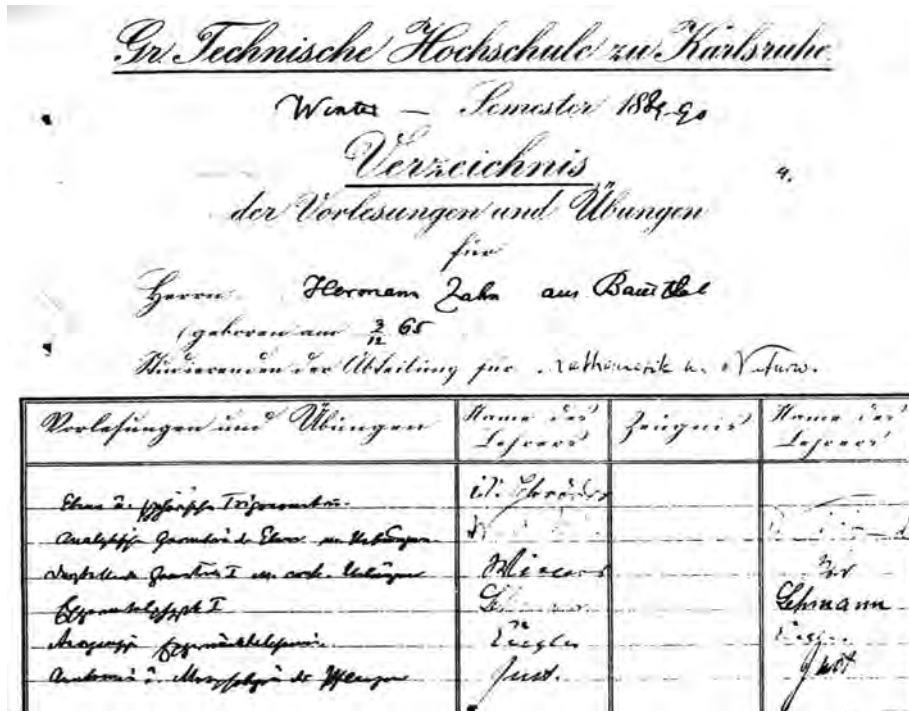 Gr. Technische Hochschule zu Karlsruhe
Winter – Semester 1889-90
Verzeichnis 9.
der Vorlesungen und Übungen
für
Herrn Hermann Zahn aus
geboren am 3/12 65
Studierenden der Abteilung für Mathematik u. Naturw.
Vorlesungen und Übungen Name des Lehrers Zeugnis Name des Lehrers
Ebene u. sphärische Trigonometrie. Schröder
Analytische Geometrie der Ebene m. Uebungen
Darstellende Geometrie I m. Uebungen Wiener
Experimentalphysik I Lehmann
Anorganische Experimentalchemie Engler
Anatomie u. Morphologie der Pflanzen Just. Just